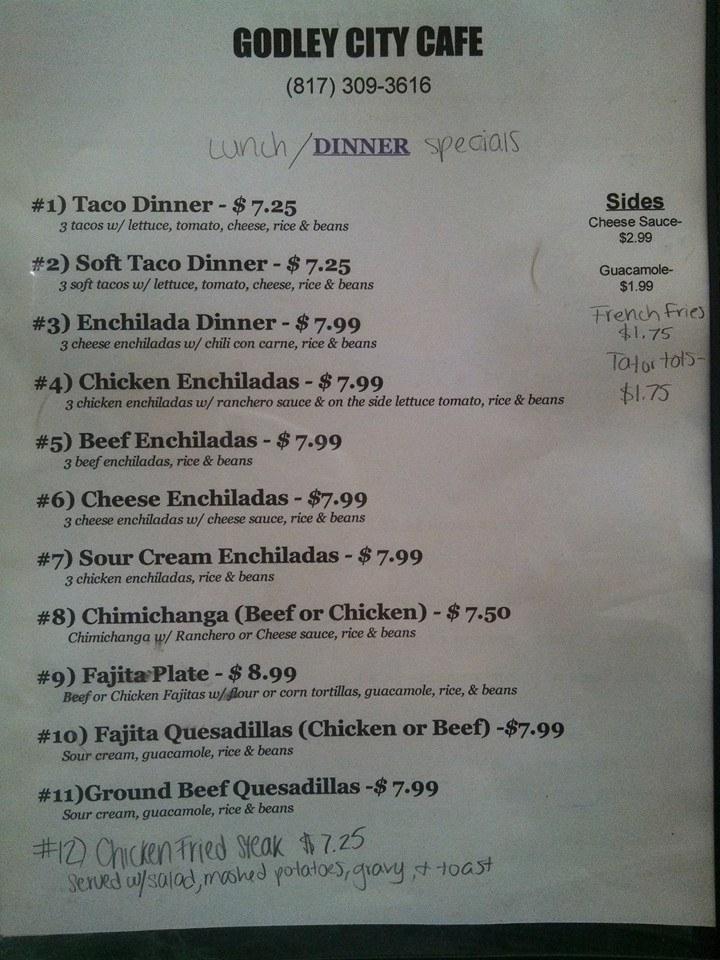 GODLEY CITY CAFE
(817) 309-3616
Lunch/DINNER specials
#1) Taco Dinner - $ 7.25
3 tacos w/ lettuce, tomato, cheese, rice & beans
#2) Soft Taco Dinner - $ 7.25
3 soft tacos w/ lettuce, tomato, cheese, rice & beans
#3) Enchilada Dinner - $ 7.99
3 cheese enchiladas w/ chili con carne, rice & beans
#4) Chicken Enchiladas - $ 7.99
3 chicken enchiladas w/ ranchero sauce & on the side lettuce tomato, rice & beans
#5) Beef Enchiladas - $ 7.99
3 beef enchiladas, rice & beans
#6) Cheese Enchiladas - $7.99
3 cheese enchiladas w/ cheese sauce, rice & beans
#7) Sour Cream Enchiladas - $ 7.99
3 chicken enchiladas, rice & beans
#8) Chimichanga (Beef or Chicken) - $ 7.50
Chimichanga w/ Ranchero or Cheese sauce, rice & beans
#9) Fajita Plate - $ 8.99
Beef or Chicken Fajitas w/ flour or corn tortillas, guacamole, rice, & beans
#10) Fajita Quesadillas (Chicken or Beef) -$7.99
Sour cream, guacamole, rice & beans
#11)Ground Beef Quesadillas -$ 7.99
Sour cream, guacamole, rice & beans
#12) Chicken Fried Steak $ 7.25
Served w/salad, mashed potatoes, gravy, + toast
Sides
Cheese Sauce-
$2.99
Guacamole-
$1.99
French Fries
$1.75
Tator tots-
$1.75